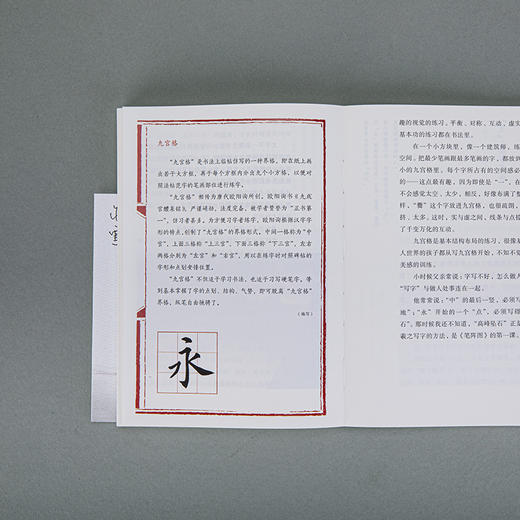 九宫格
“九宫格”是书法上临帖仿写的一种界格，即在纸上画
出若干大方框，再于每个方框内分出九个小方格，以便对
照法帖范字的笔画部位进行练字。
“九宫格”相传为唐代欧阳询所创。欧阳询书《九成
宫醴泉铭》，严谨峭劲，法度完备，被学者赞誉为“正书第
一”，仿习者甚多。为方便习学者练字，欧阳询根据汉字字
形的特点，创制了“九宫格”的界格形式，中间一格称为“中
宫”，上面三格称“上三宫”，下面三格称“下三宫”，左右
两格分别为“左宫”和“右宫”，用以在练字时对照碑帖的
字形和点划安排位置。
“九宫格”不但这于学习书法，也这于习写硬笔字，等
到基本掌握了字的点划、结构、气势，即可脱离“九宫格”
界格，纵笔自由驰骋了。
（编写）
永
趣的视觉的练习，平衡、对称、互动、虚实
基本功的练习都在书法里。
在一个小方块里，像一个建筑师，练
空间。把最少笔画跟最多笔画的字，都放到
小的九宫格里。每个字所占有的空间感必
的——这点最有趣，因为即使是“一”，在
不会感觉太空、太少。相反，好像布满了整
样，“鬱”这个字放进九宫格，也很疏朗，
挤、太多。这时，实与虚之间，线条与点捺
了千变万化的互动。
九宫格是基本结构布局的练习，很像
人世界的孩子都从九宫格开始，不知不觉
美感的训练。
小时候父亲常说：字写不好，怎么做人
“写字”与做人处事连在一起。
他常常说：“中”的最后一竖，必须
地”；“永”开始的一个“点”，必须写得
石”。那时候我还不知道，“高峰坠石”正是
羲之写字的方法，是《笔阵图》的第一课。